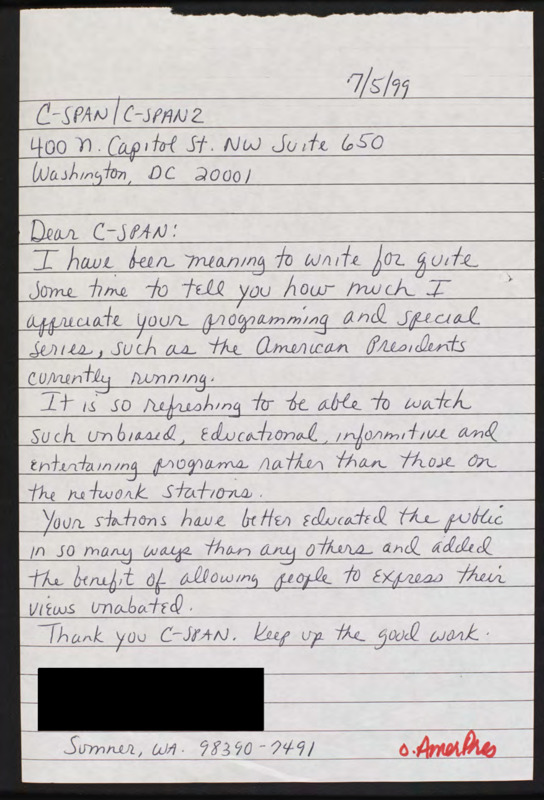 7/5/99
C-SPAN/C-SPAN2
400 N. Capitol St. NW Suite 650
Washington, DC 20001
Dear C-SPAN:
I have been meaning to write for quite
some time to tell you how much I
appreciate your programming and special
series, such as the American Presidents
currently running.
It is so refreshing to be able to watch
such unbiased, educational, informitive and
entertaining programs rather than those on
the network stations.
Your stations have better educated the public
in so many ways than any others and added
the benefit of allowing people to express their
views unabated.
Thank you C-SPAN. Keep up the good work.
Sumner, WA. 98390-7491
o.AmerPres